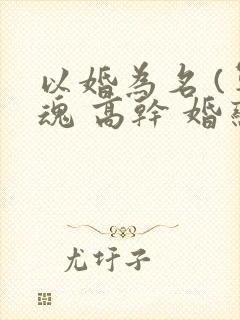 以婚為名(
魂 高幹 婚
尤圩子